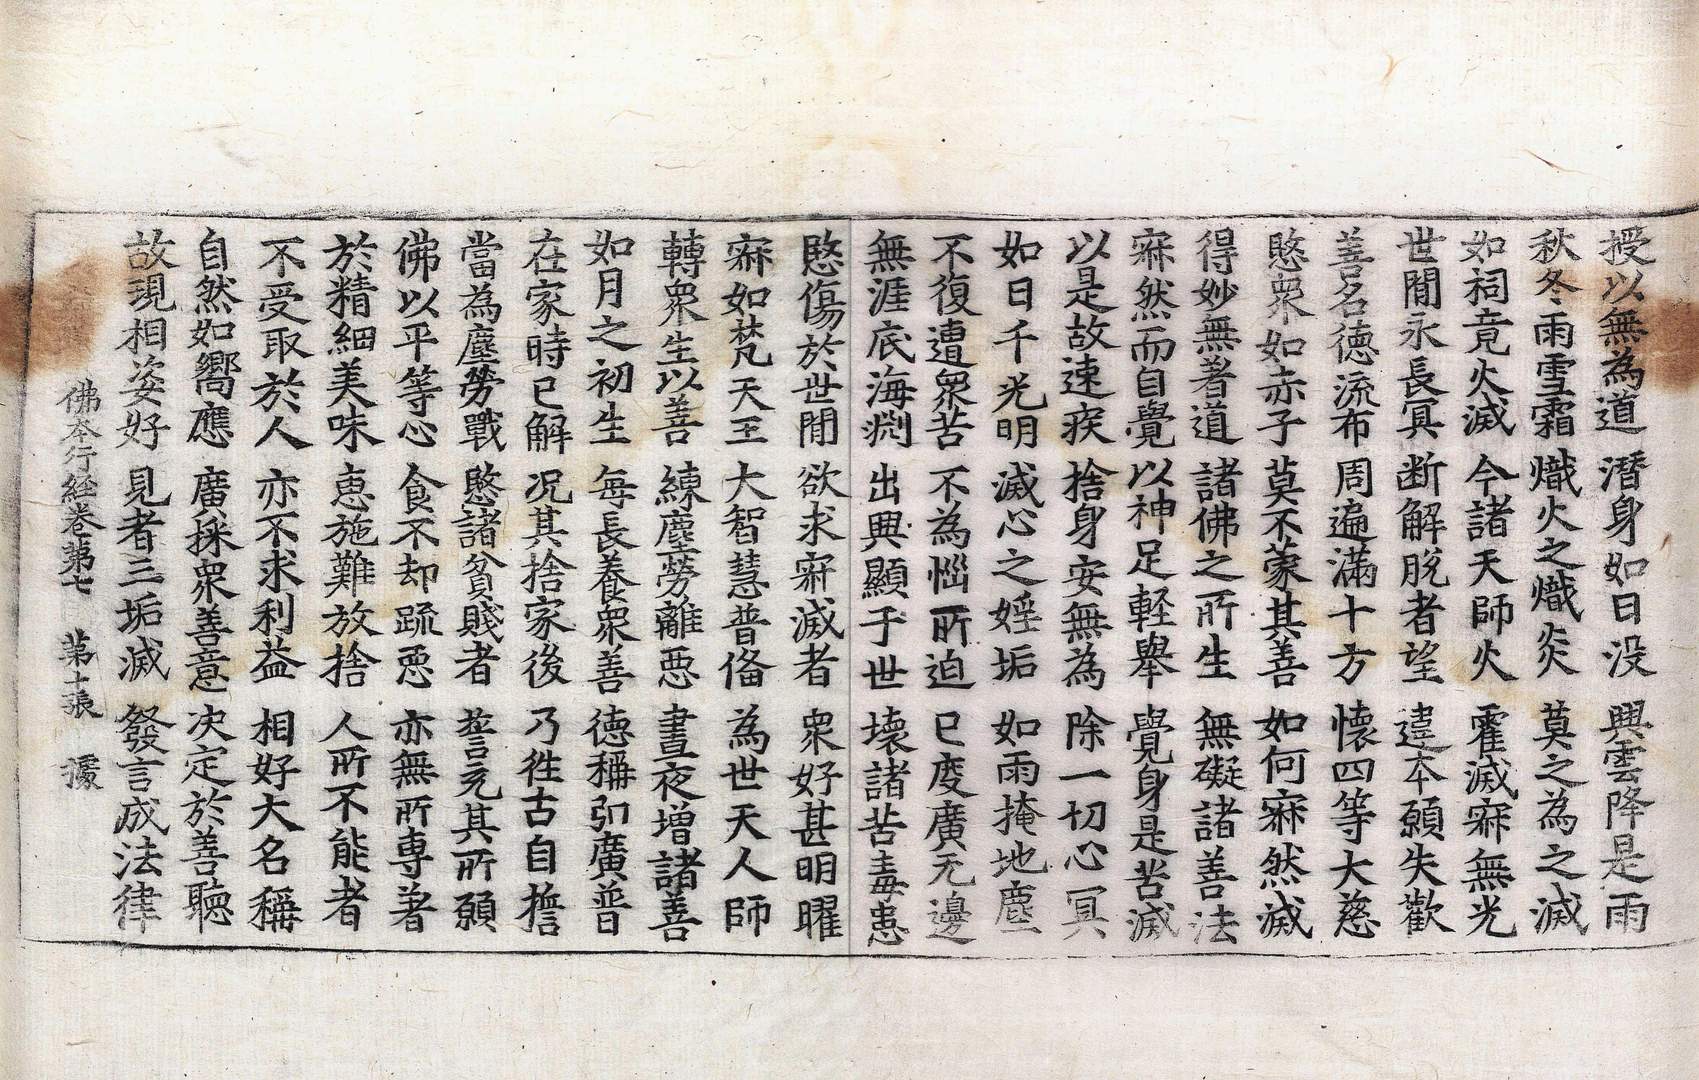 授以無為道　潛身如日没　興雲降是雨
秋冬雨雪霜　熾火之熾炎　莫之為之滅
如祠竟火滅　今諸天師火　霍滅寂無光
世閒永長冥　断解脫者望　違本願失歡
善名德流布　周遍滿十方　懷四等大慈
愍衆如赤子　莫不蒙其善　如何寂然滅
得妙無著道　諸佛之所生　無礙諸善法
寂然而自覺　以神足軽舉　覺身是苦滅
以是故速疾　捨身安無為　除一切心冥
如日千光明　滅心之婬垢　如雨掩地塵
不復遭衆苦　不為惱所迫　已度廣无邊
無涯底海渊　出興顯于世　壞諸苦毒患
愍傷於世閒　欲求寂滅者　衆好甚明曜
寂如梵天王　大智慧普俻　為世天人師
轉衆生以善　練塵勞離惡　晝夜增諸善
如月之初生　每長養衆善　德稱引廣普
在家時已解　况其捨家後　乃徃古自擔
當為塵勞戰　愍諸貧賤者　誓充其所願
佛以平等心　食不却疏惡　亦無所專著
於精細美味　恵施難放捨　人所不能者
不受取於人　亦不求利益　相好大名稱
自然如嚮應　廣採衆善意　决定於善聽
故現相姿好　見者三垢滅　發言成法律
佛本行経卷第七　第十張　據